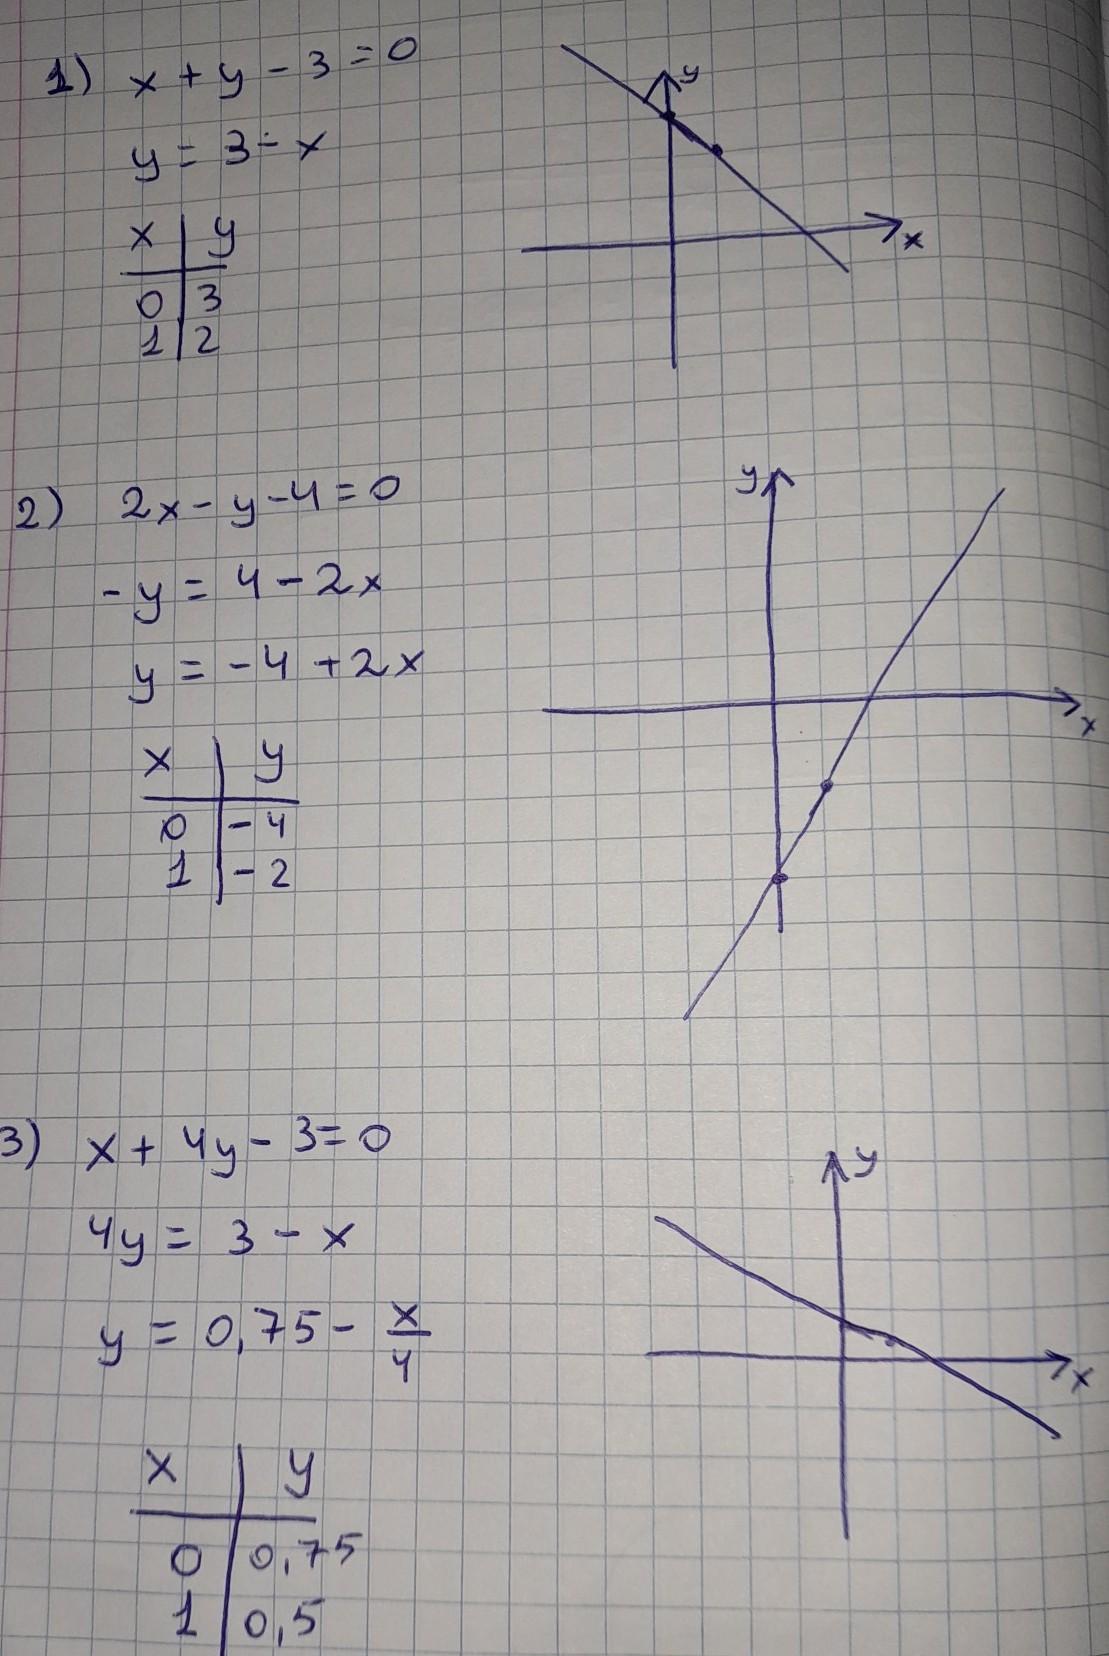 1) x + y - 3 = 0
y = 3 - x
x | y
0 | 3
1 | 2
y
x
2) 2x - y - 4 = 0
- y = 4 - 2x
y = - 4 + 2x
x | y
0 | - 4
1 | - 2
y
x
3) x + 4y - 3 = 0
4y = 3 - x
y = 0,75 - x/4
x | y
0 | 0,75
1 | 0,5
y
x